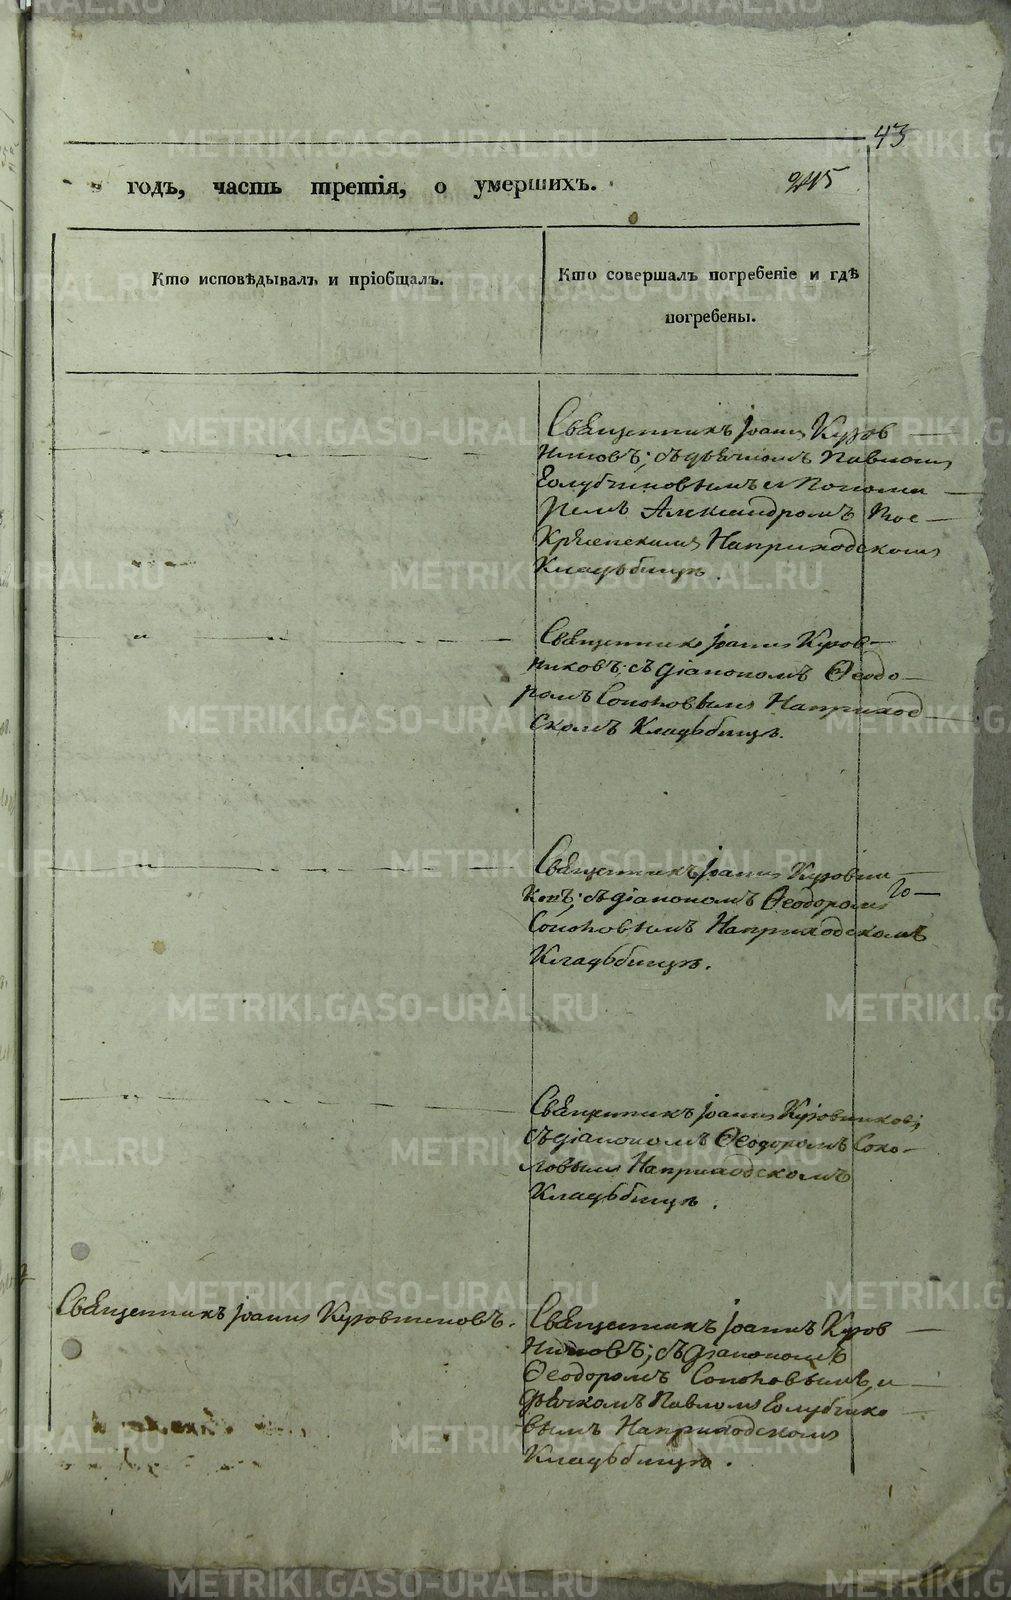 43
годъ, часть третія, о умершихъ.
245
Кто исповѣдывалъ и пріобщалъ.
Кто совершалъ погребеніе и гдѣ
погребены.
Священникъ Іоаннъ Куров
никовъ; съ дьячкомъ Павломъ
Голубчиковымъ и Понома
ремъ Александромъ Вос
кресенскимъ На приходскомъ
Кладъбищѣ.
Священникъ Іоаннъ Куров
никовъ; съ діакономъ Ѳеодо
ромъ Соколовымъ На приход
скомъ Кладъбищѣ.
Священникъ Іоаннъ Куровни
ковъ; съ діакономъ Ѳеодоромъ
Соколовымъ На приходскомъ
Кладъбищѣ.
Священникъ Іоаннъ Куровниковъ;
съ діакономъ Ѳеодоромъ Соко
ловымъ На приходскомъ
Кладъбищѣ.
Священникъ Іоаннъ Куровниковъ.
Священникъ Іоаннъ Куров
никовъ; съ діакономъ
Ѳеодоромъ Соколовымъ и
дьячкомъ Павломъ Голубчико
вымъ На приходскомъ
Кладъбищѣ.
METRIKI.GASO-URAL.RU